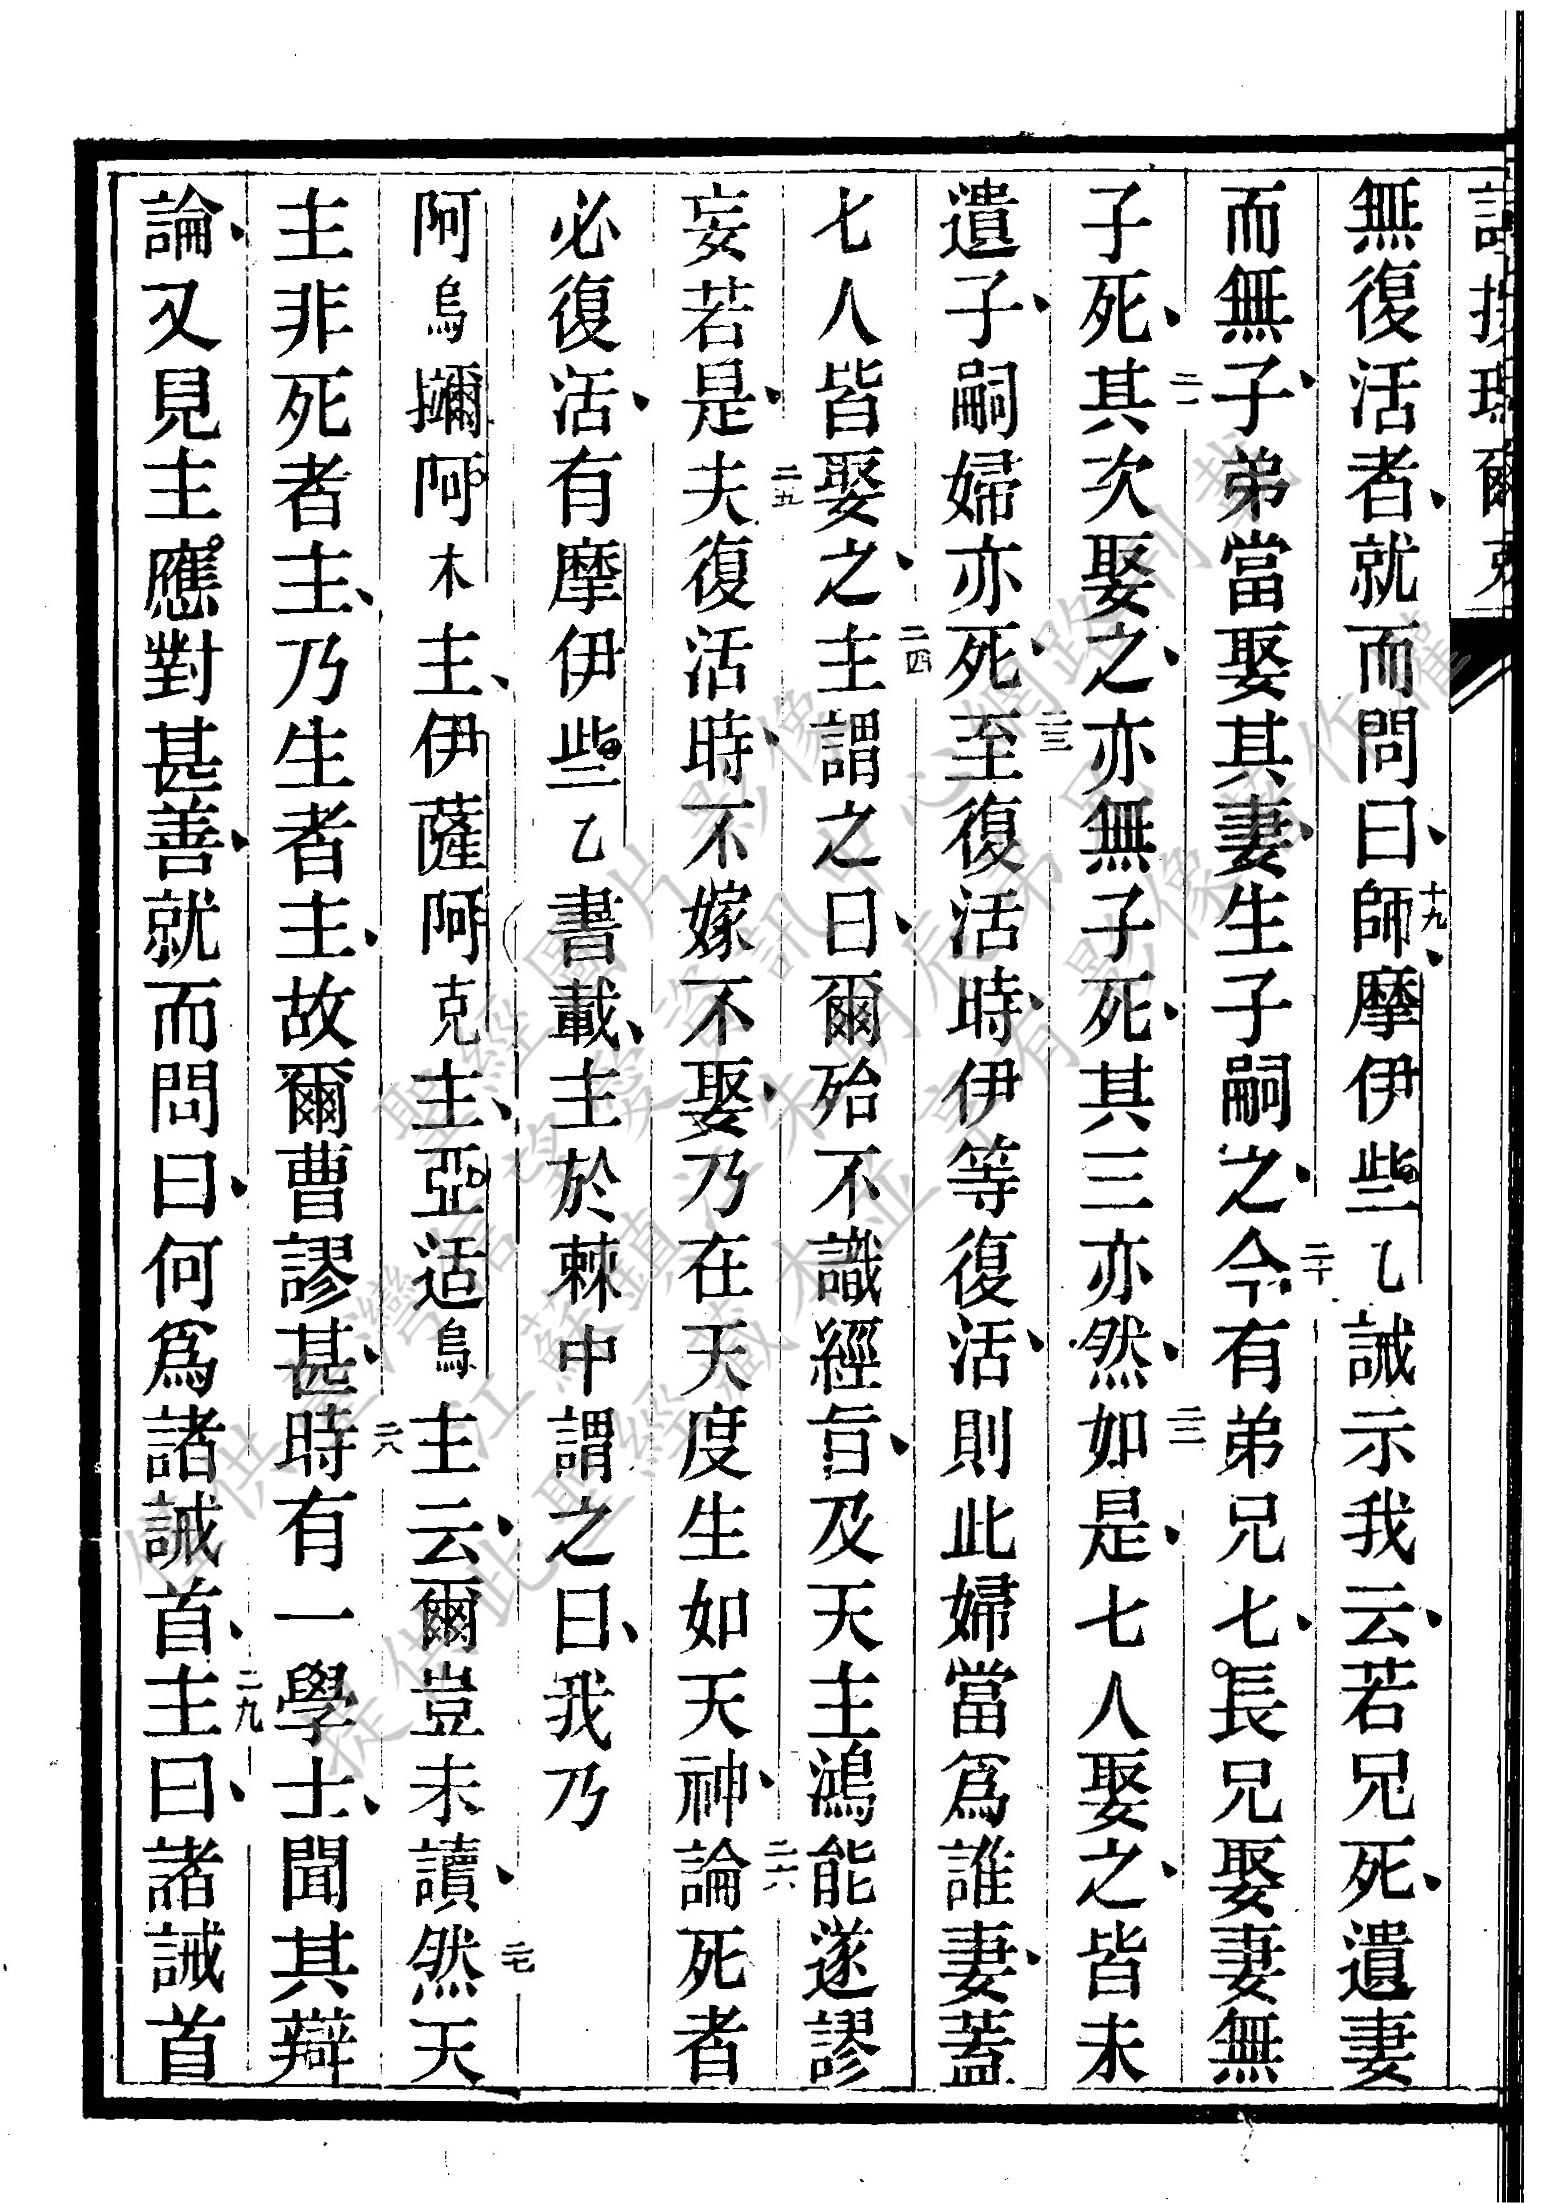 無復活者、就而問曰、十九師、摩伊些乙誡示我云、若兄死、遺妻
而無子、弟當娶其妻、生子嗣之、二十今有弟兄七、長兄娶妻無
子死、二一其次娶之、亦無子死、其三亦然、二二如是、七人娶之、皆未
遺子、嗣婦亦死、二三至復活時、伊等復活、則此婦當爲誰妻、蓋
七人皆娶之、二四主謂之曰、爾殆不識經旨、及天主鴻能遂謬
妄若是、二五夫復活時、不嫁不娶、乃在天度生如天神、二六論死者
必復活、有摩伊些乙書載、主於棘中謂之曰、我乃
阿烏擟阿木主、伊薩阿克主、亞适烏主云、爾豈未讀、二七然天
主非死者主、乃生者主、故爾曹謬甚、二八時有一學士、聞其辯
論、又見主應對甚善、就而問曰、何爲諸誡首、二九主曰、諸誡首